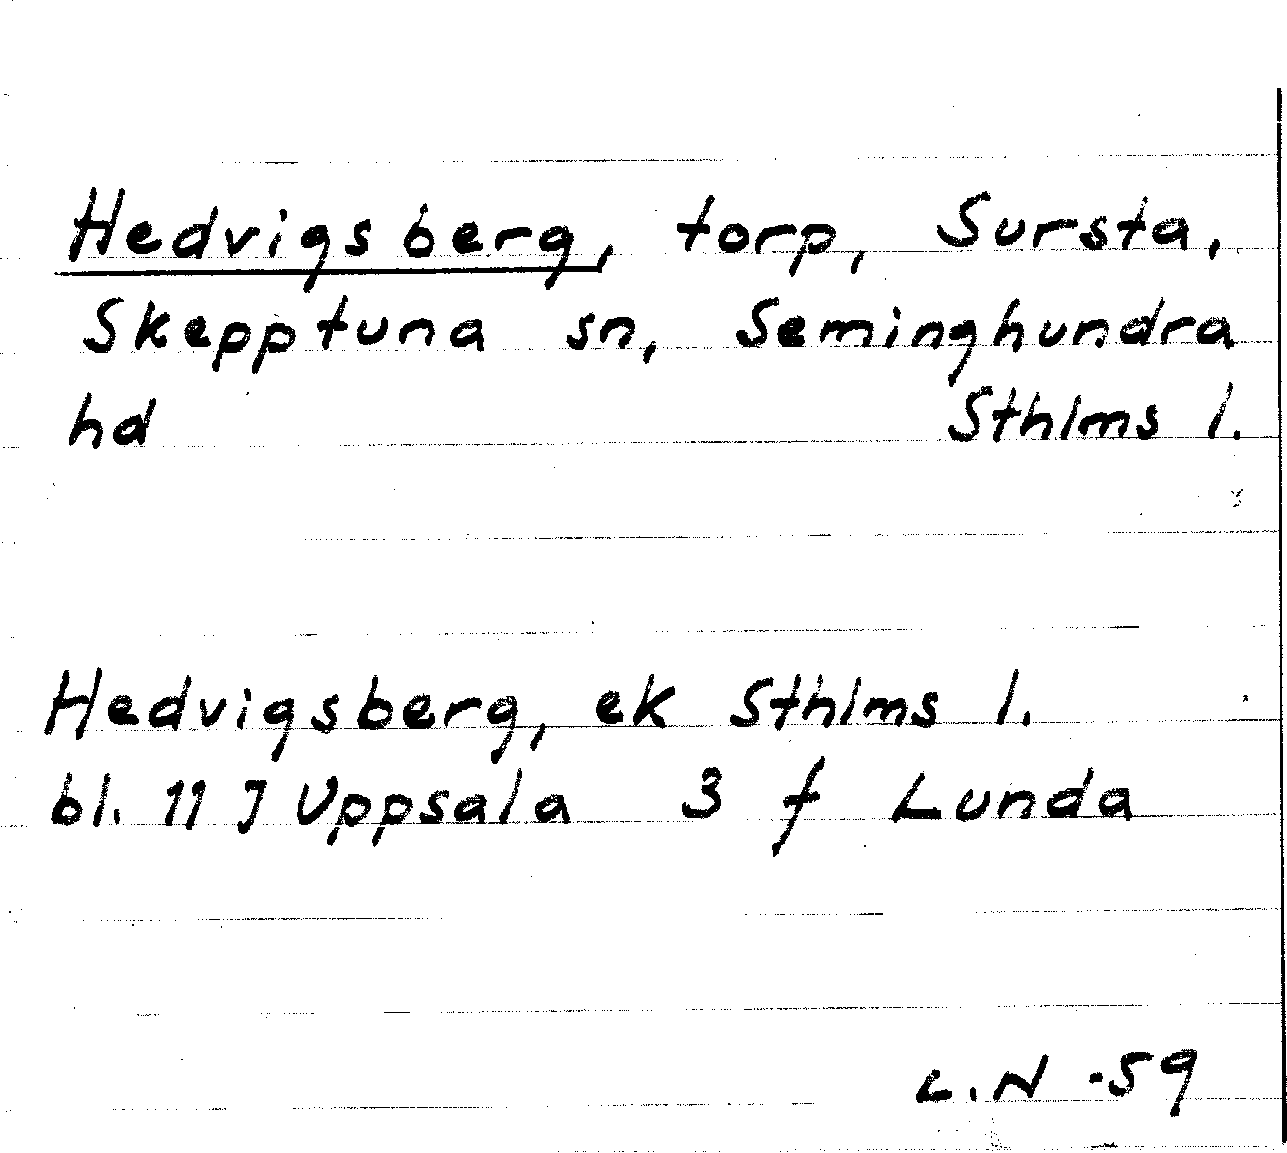 Hedvigsberg, torp, Sursta,
Skepptuna sn, Seminghundra
hd Sthlms l.
Hedvigsberg, ek Sthlms l.
bl. 11 J Uppsala 3 f Lunda
L.N -59